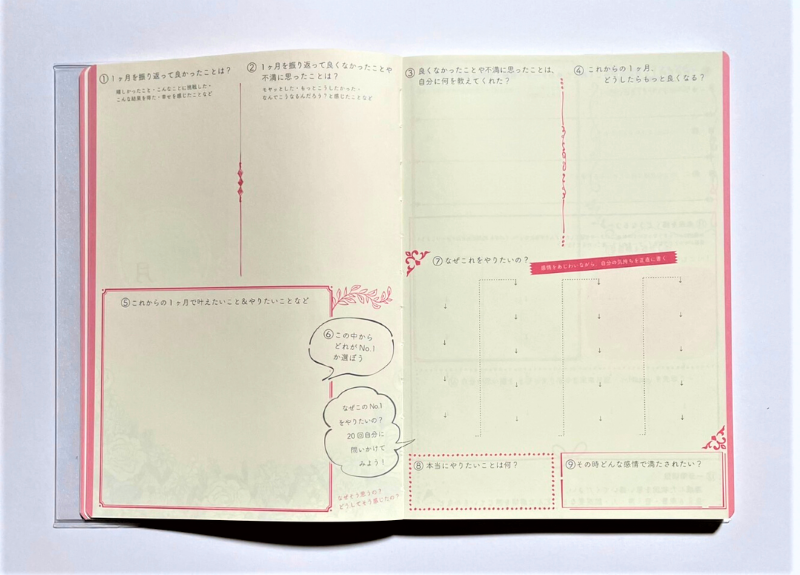 ①1ヶ月を振り返って良かったことは？
嬉しかったこと・こんなことに挑戦した・
こんな結果を得た・幸せを感じたことなど
②1ヶ月を振り返って良くなかったことや
不満に思ったことは？
モヤッとした・もっとこうしたかった・
なんでこうなるんだろう？と感じたことなど
③良くなかったことや不満に思ったことは、
自分に何を教えてくれた？
④これからの1ヶ月、
どうしたらもっと良くなる？
⑤これからの1ヶ月で叶えたいこと＆やりたいことなど
⑥この中から
どれがNo.1
か選ぼう
なぜこのNo.1
をやりたいの？
20回自分に
問いかけて
みよう！
なぜそう思うの？
どうしてそう感じたの？
⑦なぜこれをやりたいの？
感情をあじわいながら、自分の気持ちを正直に書く
⑧本当にやりたいことは何？
⑨その時どんな感情で満たされたい？